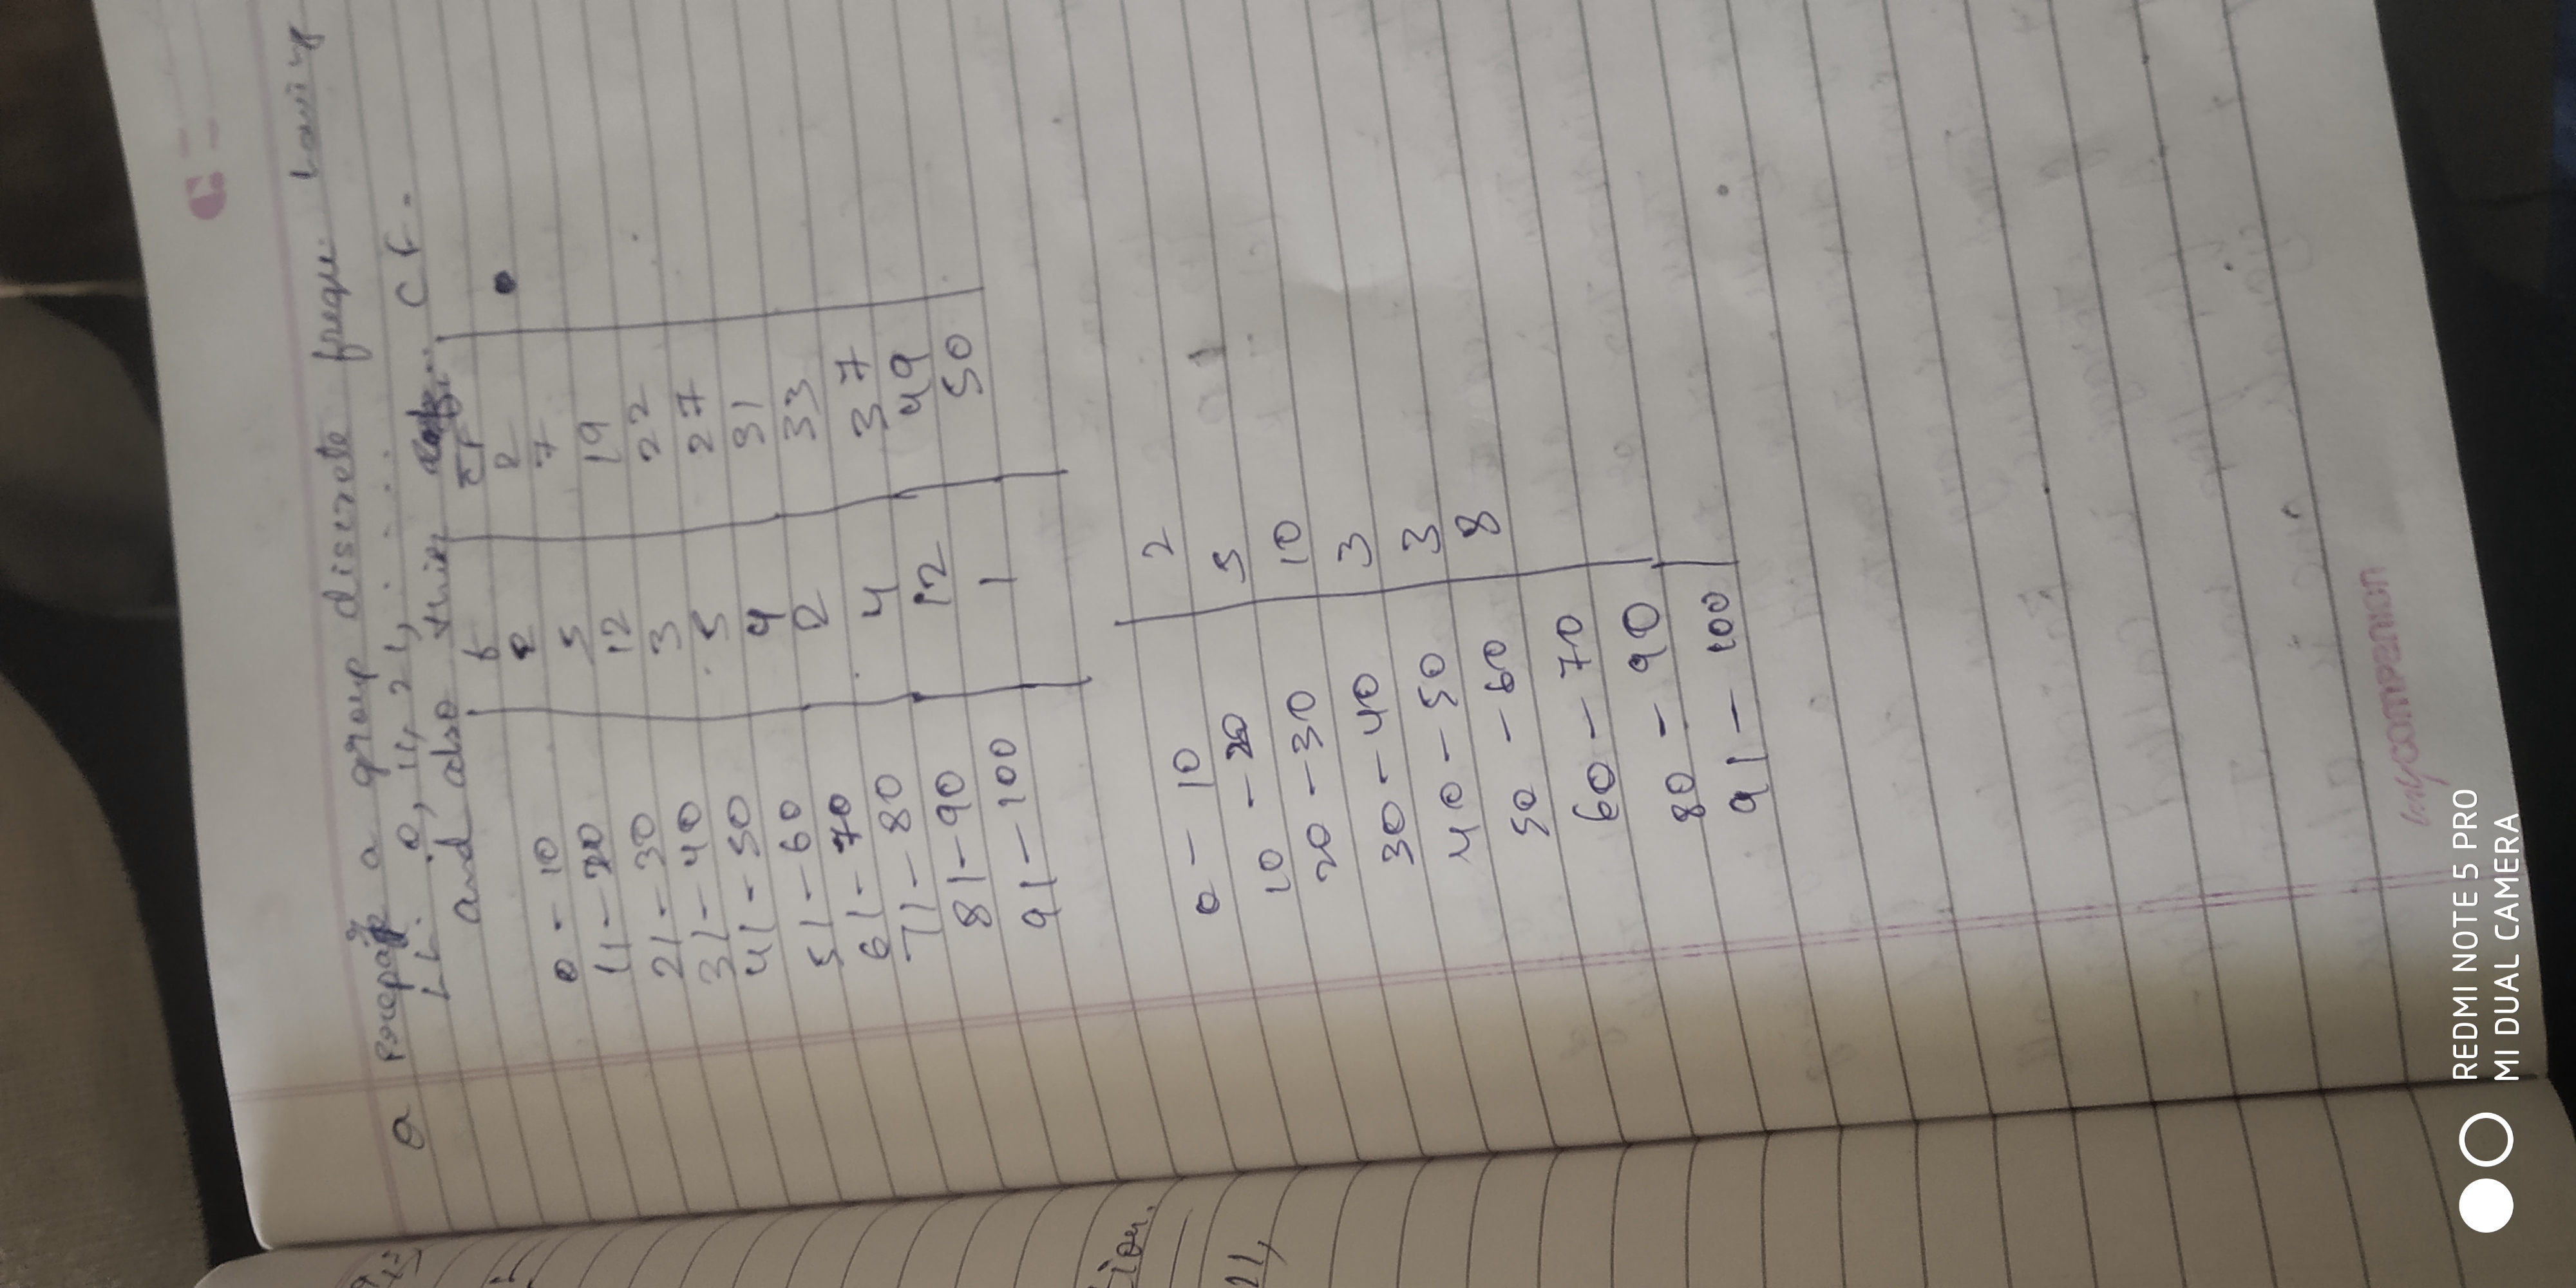 Q prepare a group discrete freque. having
LL. 0, 11, 21, .....
and also their C F.
f CF
0 - 10 2 2
11 - 20 5 7
21 - 30 12 19
31 - 40 3 22
41 - 50 5 27
51 - 60 4 31
61 - 70 2 33
71 - 80 4 37
81 - 90 12 49
91 - 100 1 50
0 - 10 2
10 - 20 5
20 - 30 10
30 - 40 3
40 - 50 3
50 - 60 8
60 - 70
80 - 90
91 - 100
tion.
11,
mycompanion
REDMI NOTE 5 PRO
MI DUAL CAMERA